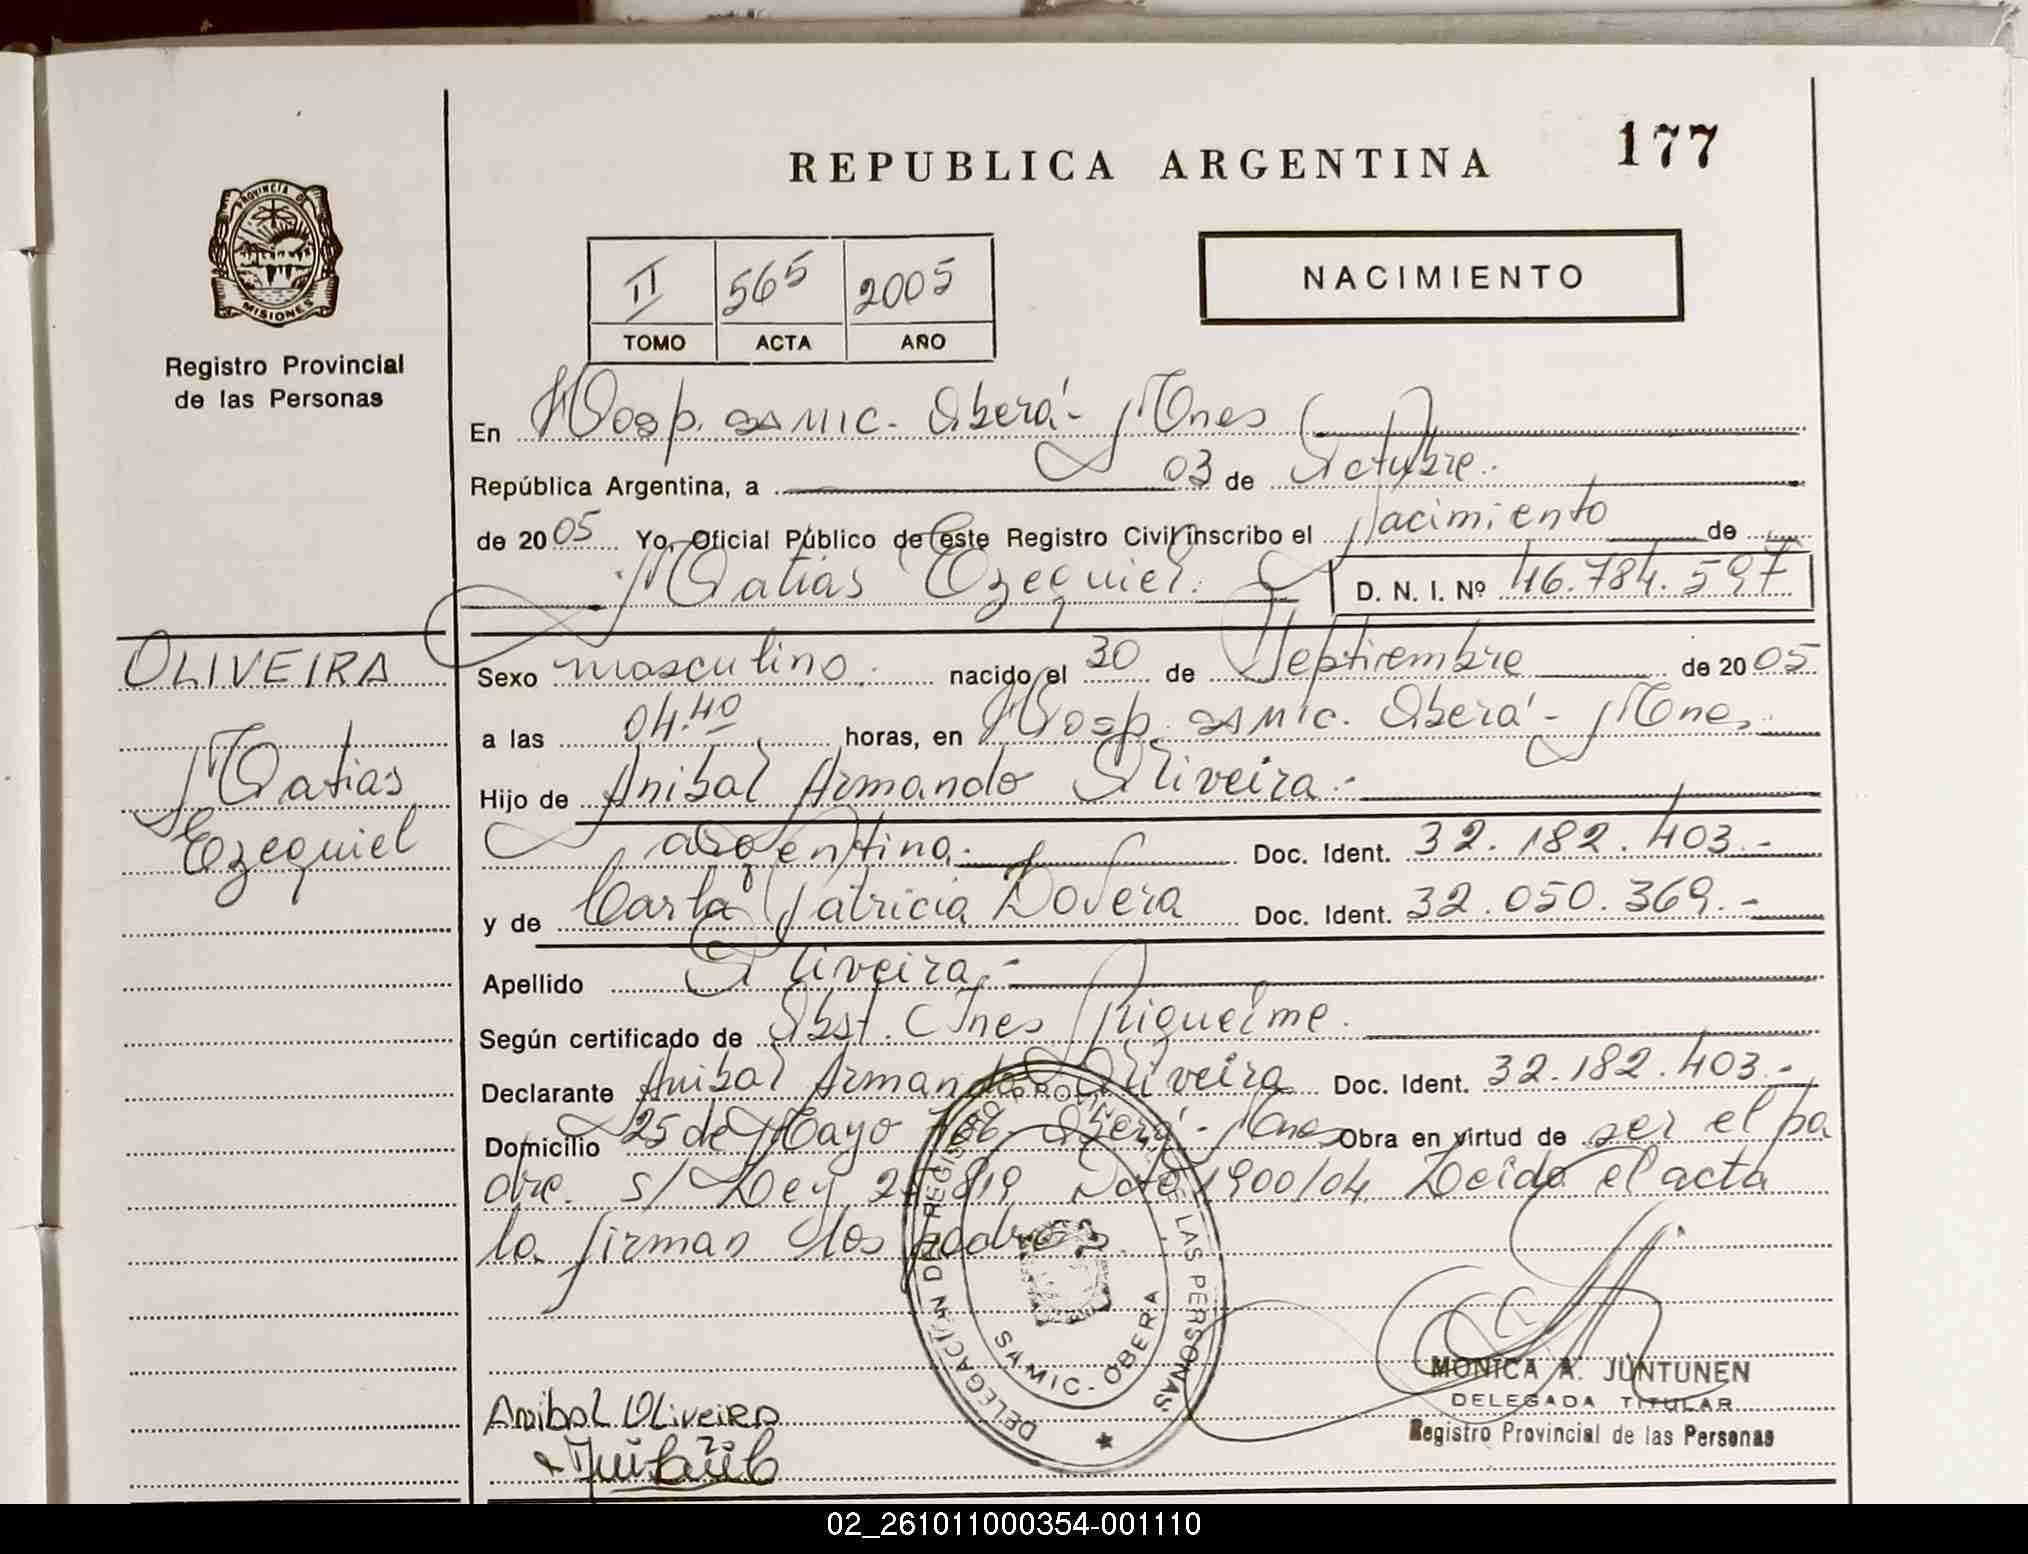 177
REPUBLICA ARGENTINA
PROVINCIA DE MISIONES
Registro Provincial
de las Personas
NACIMIENTO
II 565 2005
TOMO ACTA AÑO
En Hosp. SAMIC. Oberá - Mnes
República Argentina, a 03 de Octubre.
de 2005 Yo, Oficial Público de este Registro Civil inscribo el Nacimiento de
Matias Ezequiel. D. N. I. Nº 46.784.597
OLIVEIRA
Matias
Ezequiel
Sexo masculino. nacido el 30 de Septiembre de 2005
a las 04:40 horas, en Hosp. SAMIC. Oberá - Mnes.
Hijo de Anibal Armando Oliveira.-
argentino.- Doc. Ident. 32.182.403.-
y de Carla Patricia Dovera Doc. Ident. 32.050.369.-
Apellido Oliveira.-
Según certificado de Obst. Ines Riquelme.
Declarante Anibal Armando Oliveira Doc. Ident. 32.182.403.-
Domicilio 25 de Mayo Oberá - Mnes Obra en virtud de ser el pa
dre. s/ Ley 819 Dcto 1900/04 Leida el acta
la firman los padres.
DELEGACIÓN DE REGISTRO PROVINCIAL DE LAS PERSONAS
SAMIC - OBERA
Anibal Oliveira
MONICA A. JUNTUNEN
DELEGADA TITULAR
Registro Provincial de las Personas
02_261011000354-001110